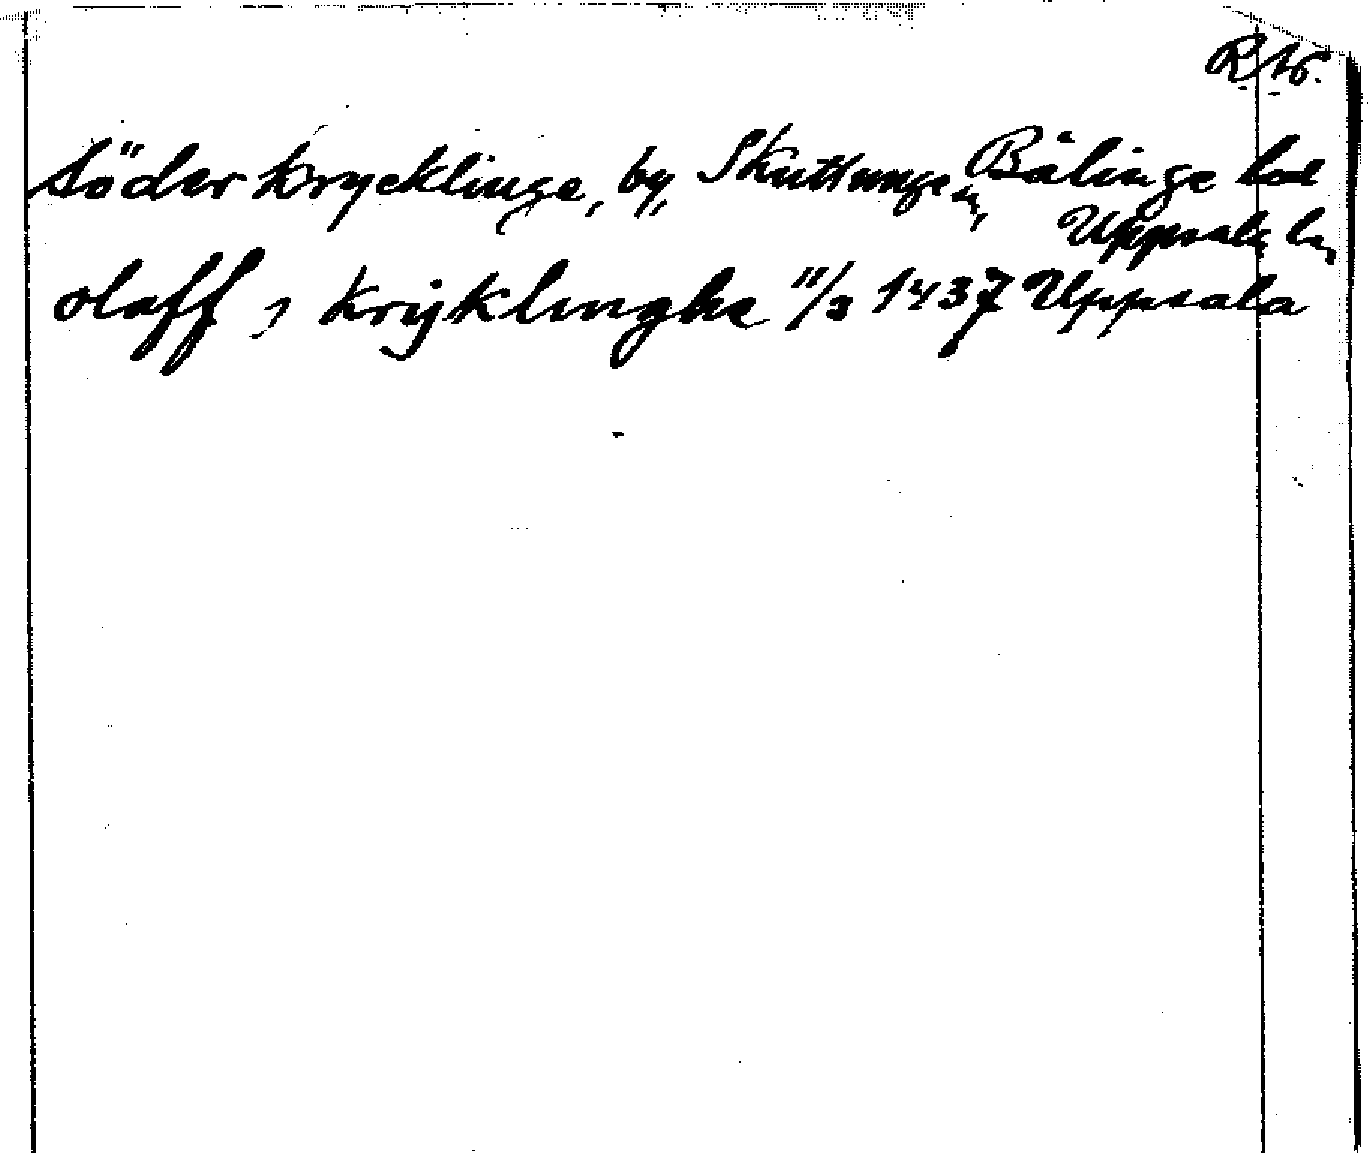 R16.
Söder Krycklinge, by, Skuttunge sn, Bälinge hd
Uppsala län
olaff j Krijklinghe 11/3 1437 Uppsala